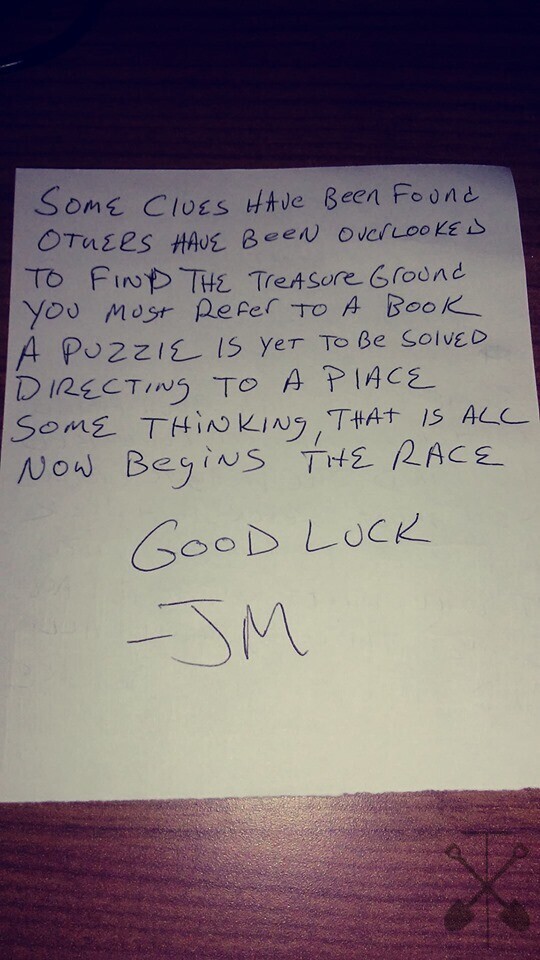 SOME CLUES HAVE BEEN FOUND
OTHERS HAVE BEEN OVERLOOKED
TO FIND THE TREASURE GROUND
YOU MUST REFER TO A BOOK
A PUZZLE IS YET TO BE SOLVED
DIRECTING TO A PLACE
SOME THINKING, THAT IS ALL
NOW BEGINS THE RACE
GOOD LUCK
-JM